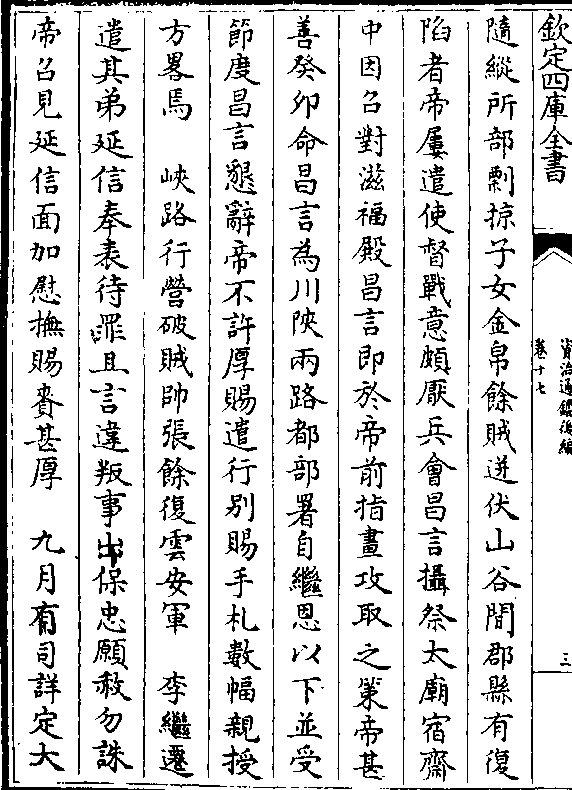 欽定四庫全書
資治通鑑後編
卷十七
三
隨縱所部剽掠子女金帛餘賊迸伏山谷間郡縣有復
陷者帝屢遣使督戰意頗厭兵會昌言攝祭太廟宿齋
中因召對滋福殿昌言即於帝前指畫攻取之策帝甚
善癸卯命昌言為川陜兩路都部署自繼恩以下並受
節度昌言懇辭帝不許厚賜遣行别賜手札數幅親授
方畧焉　峽路行營破賊帥張餘復雲安軍　李繼遷
遣其弟延信奉表待罪且言違叛事出保忠願赦勿誅
帝召見延信面加慰撫賜賚甚厚　九月有司詳定大